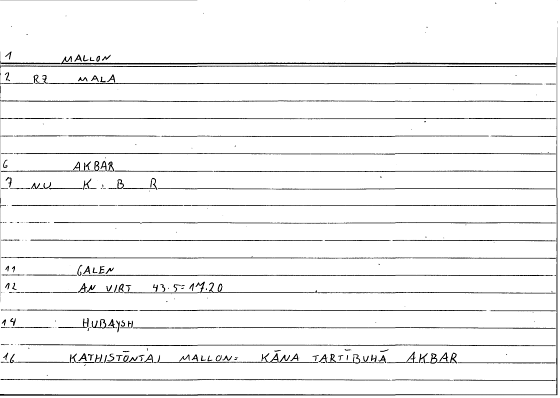 1 MALLON
2 RZ MALA
6 AKBAR
7 NU K . B R
11 GALEN
12 AN VIRT 43.5=17.20
14 ḤUBAYSH
16 KATHISTŌNTAI MALLON= KĀNA TARTĪBUHĀ AKBAR